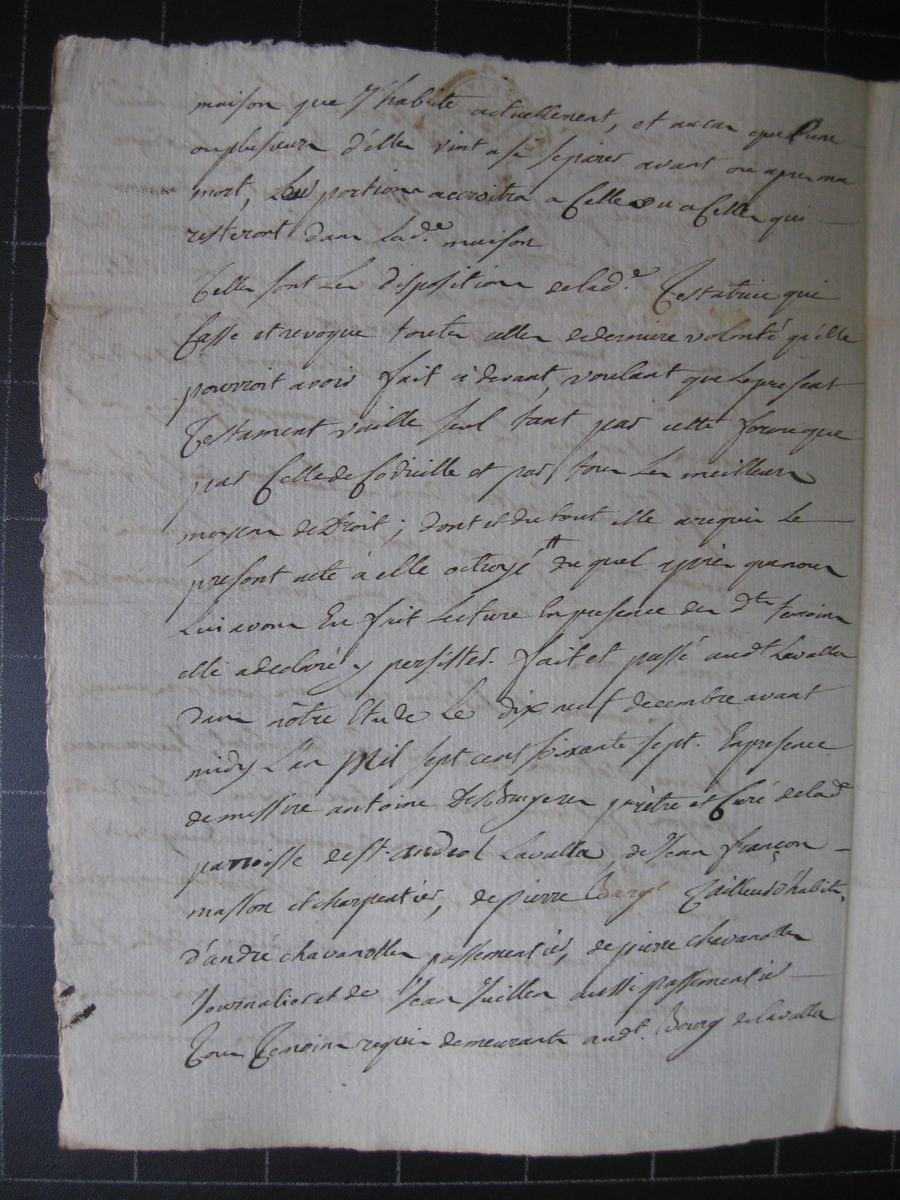 maison que J'habite actuellement, et au cas que l'une
ou plusieurs d'elles vint a se séparer avant ou apres ma
mort, Leur portion accroitra a Celle ou a Celles qui
resteront dans lad.e maison
Telles sont Les dispositions de lad.e Testatrice qui
Casse et revoque toutes celles de derniere volonté qu'elle
pourroit avoir fait ci devant, voulant que Le present
Testament vaille seul tant par cette forme que
par Celle de Codicille et par tous Les meilleurs
moyens de Droit; dont et du tout elle a requis Le
present acte à elle octroyé du quel après que nous
Lui avons Eu fait Lecture En presence des dts temoins
elle a declaré y persister. fait et passé aud.t Lavalla
dans nôtre Etude Le dix neuf decembre avant
midy L'an Mil sept cent soixante sept. En presence
de messire antoine Desbruyeres prêtre et Curé de lad
parroisse de St. andéol Lavalla, de Jean françon
masson et charpentier, de pierre Tailleur d'habits,
d'andré chavanolles passementier, de pierre chavanolles
Journalier et de Jean Juillen aussi passementier
Tous Temoins requis demeurants aud.t Bourg de Lavalla